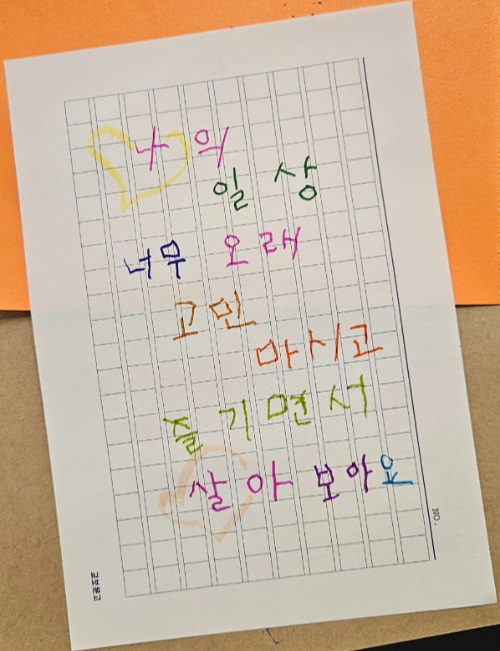 나의
일상
너무 오래
고민
마시고
즐기면서
살아 보아요
NO.